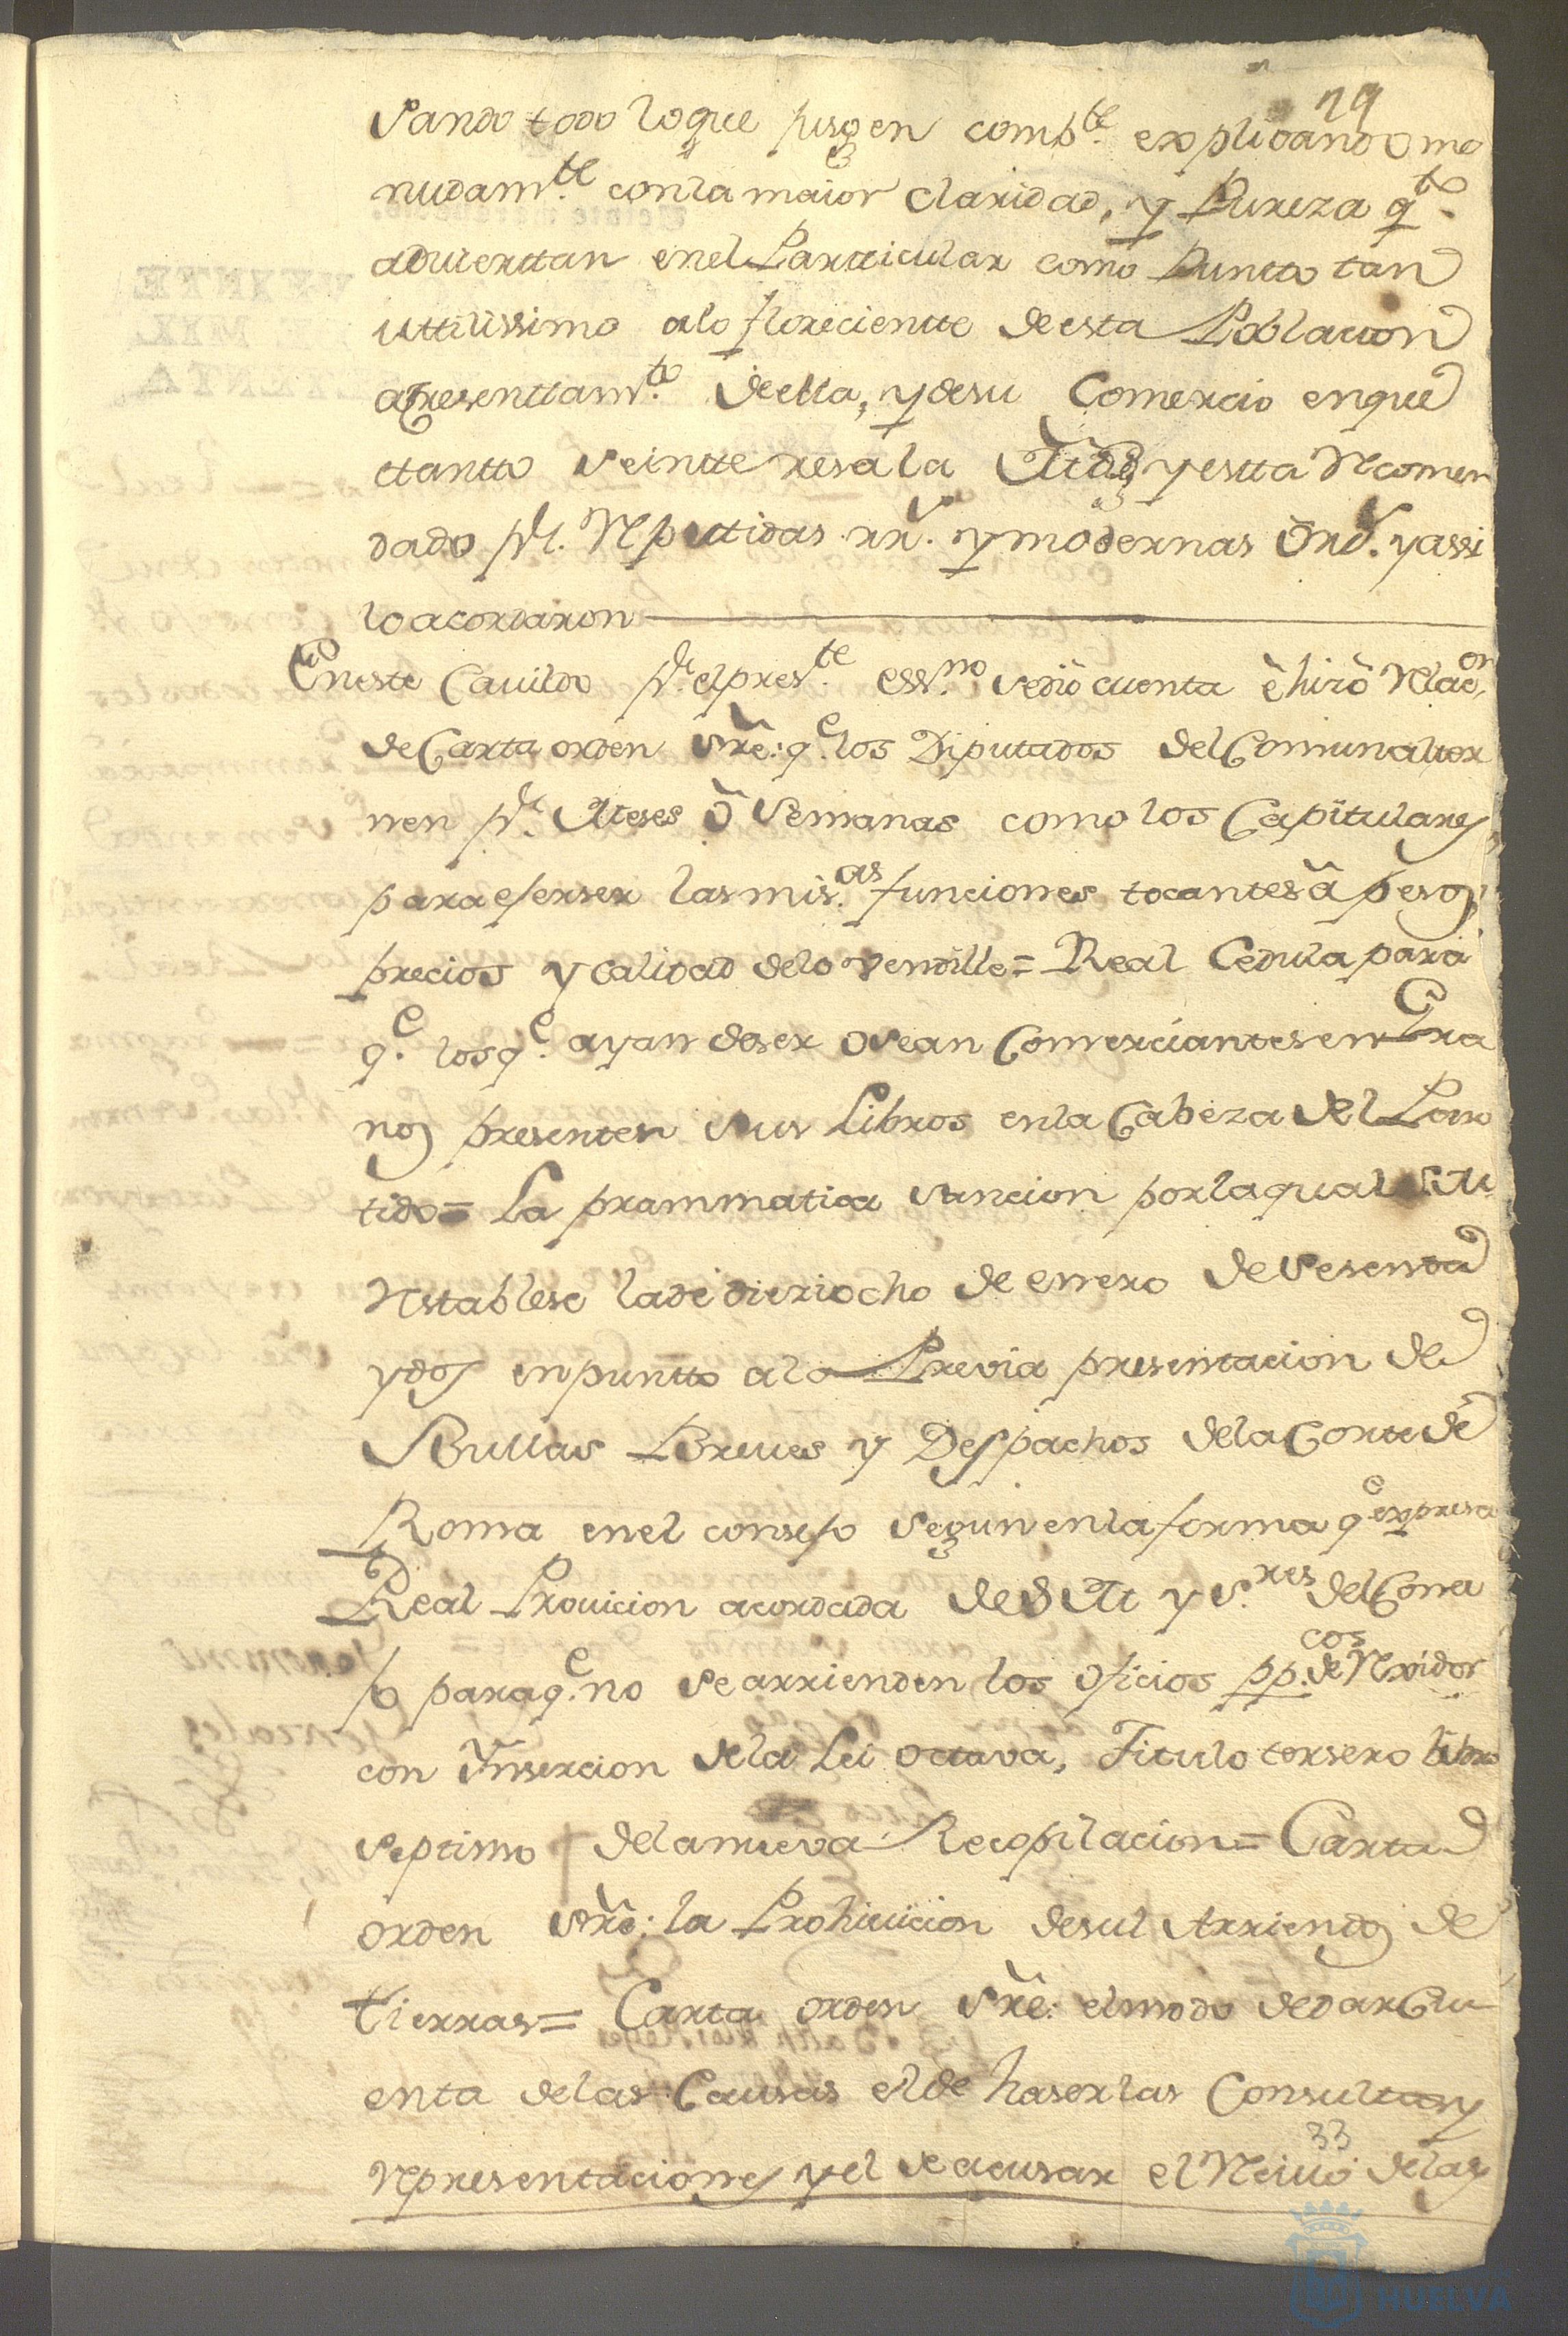 29
sando todo loque jusgen comb.te explicando me
nudam.te conla maior claridad, y Pureza q.to
aduierttan enel Partticular como Puntto tan
uttilissimo alo floreciente deesta Poblacion
apresenttam.te deella, y desu Comercio enque
ttantto se inttteresa la y estta Recomen
dado p.r Repettidas rr.s y modernas Ord.s y assi
lo acordaron
Eneste Cauildo p.r elpres.te ess.no sedio cuenta e hizo Relac.on
de Carta orden sre: q.e los Diputados del Comun alter
nen p.r Meses o Semanas como los Capitulares,
para eserser las mis.as funciones tocantes a pesos,
precios y calidad delo vendille = Real Cedula para
q.e los q.e ayan deser o sean Comerciantes en Gra
nos presenten sus Libros enla Cabeza del Par
tido = La prammatica sancion por la qual S M
Restablese lade dieziocho de enero de sesenta
y dos enpuntto ala Previa presentacion de
Bullas Breues y Despachos dela Corte de
Roma enel consejo segun enla forma q.e expresa
Real Prouicion acordada de S M y S.res del Conse
jo paraq.e no se arrienden los oficios pp.cos de Rexidor
con Insercion dela Lei octava, Titulo tersero libro
septimo dela nueva Recopilacion = Carta
orden sre: la Prohiuicion desul Arriendos de
tierras = Carta orden sre: el modo de dar Cu
enta delas Causas el de haser las Consultas y
Representaciones y el de acusar el Reciuo delas
33
HUELVA